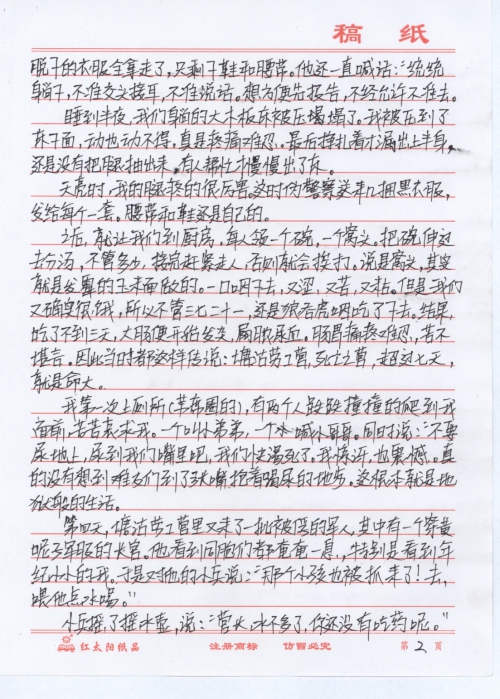 稿纸
脱下的衣服全拿走了，只剩下鞋和腰带。他还一直喊话：“统统
躺下，不准交头接耳，不准说话。想方便先报告，不经允许不准去。
睡到半夜，我们身躺的大木板床被压塌了。我被压到了
床下面，动也动不得，真是疼痛难忍。最后挣扎着才漏出上半身，
还是没有把腿抽出来。有人帮忙才慢慢出了床。
天亮时，我的腿疼的很厉害。这时伪警察送来几捆黑衣服，
发给每个一套。腰带和鞋还是自己的。
之后，就让我们到厨房，每人领一个碗，一个窝头。把碗伸过
去分汤，不管多少，接完赶紧走人，否则就会挨打。说是窝头，其实
就是发霉的玉米面做的。一口咽下去，又涩，又苦，又粘。但是我们
又确实很饿，所以不管三七二十一，还是狼吞虎咽吃了下去。结果，
吃了不到三天，大肠便开始发炎，屙脓屙血。肠胃痛疼难忍，苦不
堪言。因此当时都这样传说：塘沽劳工营，死亡之营，超过七天，
就是命大。
我第一次上厕所（苇席圈的），有两个人跌跌撞撞的爬到我
面前，苦苦哀求我。一个叫小弟弟，一个喊小哥哥。同时说：“不要
尿地上，尿到我们嘴里吧，我们快渴死了。我惊讶，也震撼。真
的没有想到难友们到了张嘴抢着喝尿的地步。这根本就是地
狱般的生活。
第四天，塘沽劳工营里又来了一批被俘的军人，其中有一个穿黄
呢子军服的长官，他看到同胞们都奄奄一息，特别是看到年
纪小小的我。于是对他的小兵说：“那个小孩也被抓来了！去，
喂他点水喝。”
小兵摇了摇水壶，说：“营长，水不多了，你还没有吃药呢。”
红太阳纸品
注册商标 仿冒必究
第2页